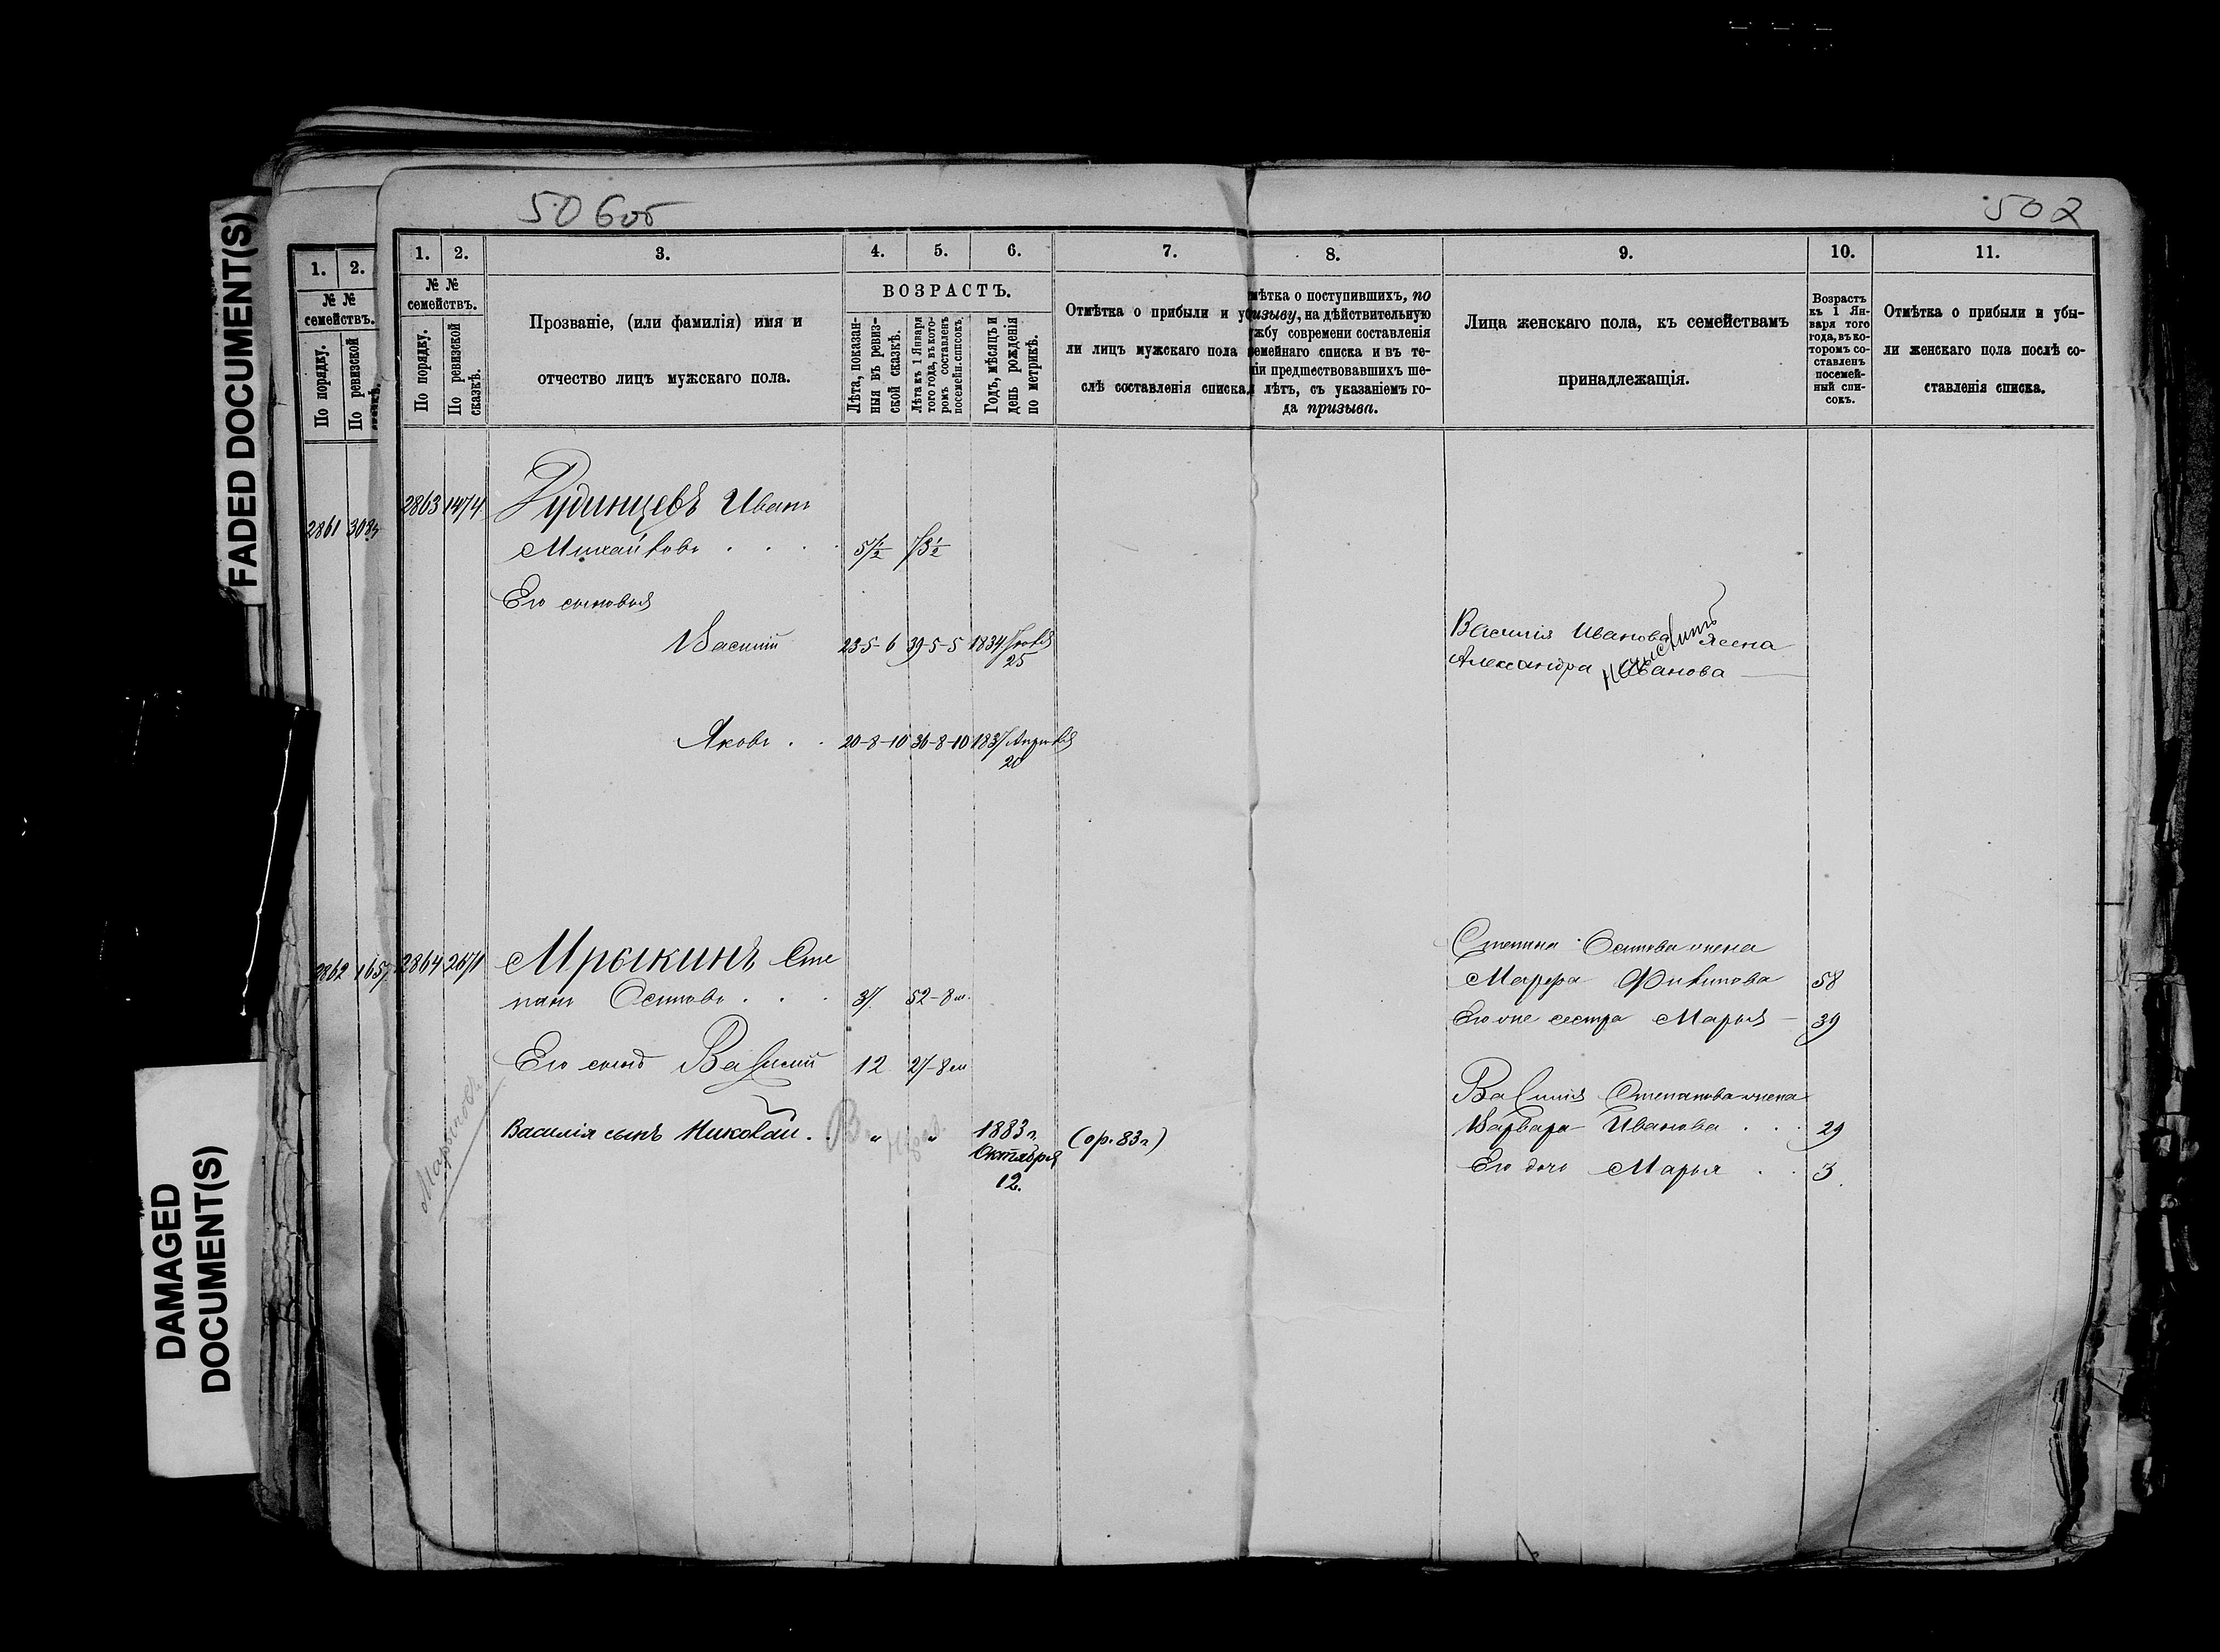 FADED DOCUMENT(S)
DAMAGED
DOCUMENT(S)
50 6об
502
1. 2.
№ №
семействъ.
По порядку.
По ревизской
2861
2862 1657
1. 2. 3. 4. 5. 6. 7. 8. 9. 10. 11.
№ №
семействъ.
По порядку.
По ревизской
сказкѣ.
Прозваніе, (или фамилія) имя и
отчество лицъ мужскаго пола.
ВОЗРАСТЪ.
Лѣта, показан-
ныя въ ревиз-
ской сказкѣ.
Лѣта къ 1 Января
того года, въ кото-
ромъ составленъ
посемейн. списокъ.
Годъ, мѣсяцъ и
день рожденія
по метрикѣ.
Отмѣтка о прибыли и у
ли лицъ мужскаго пола
слѣ составленія списка.
мѣтка о поступившихъ, по
изыву, на дѣйствительную
жбу современи составленія
емейнаго списка и въ те-
іи предшествовавшихъ ше-
лѣтъ, съ указаніемъ го-
да призыва.
Лица женскаго пола, къ семействамъ
принадлежащія.
Возрастъ
къ 1 Ян-
варя того
года, въ ко-
торомъ со-
ставленъ
посемей-
ный спи-
сокъ.
Отмѣтка о прибыли и убы-
ли женскаго пола послѣ со-
ставленія списка.
2863 1474 Рудинцевъ Иванъ
Михайловъ
Его сыновья
Василій 23-5-6 39-5-5 1834
25
Василія Иванова жена
Александра Иванова
Яковъ 20-8-10 36-8-10 1837 Апрѣля
20
2864 2671 Мрыкинъ Сте
панъ Осиповъ 37 52-8м.
Степана Осипова жена
Марфа Филипова 58
Его же сестра Марья 39
Его сынъ Василій 12 27-8м
Василія Степанова жена
Варвара Иванова 29
Его дочь Марья 3
Василія сынъ Николай. „ „ 1883г. (ор. 83г)
Октября
12.